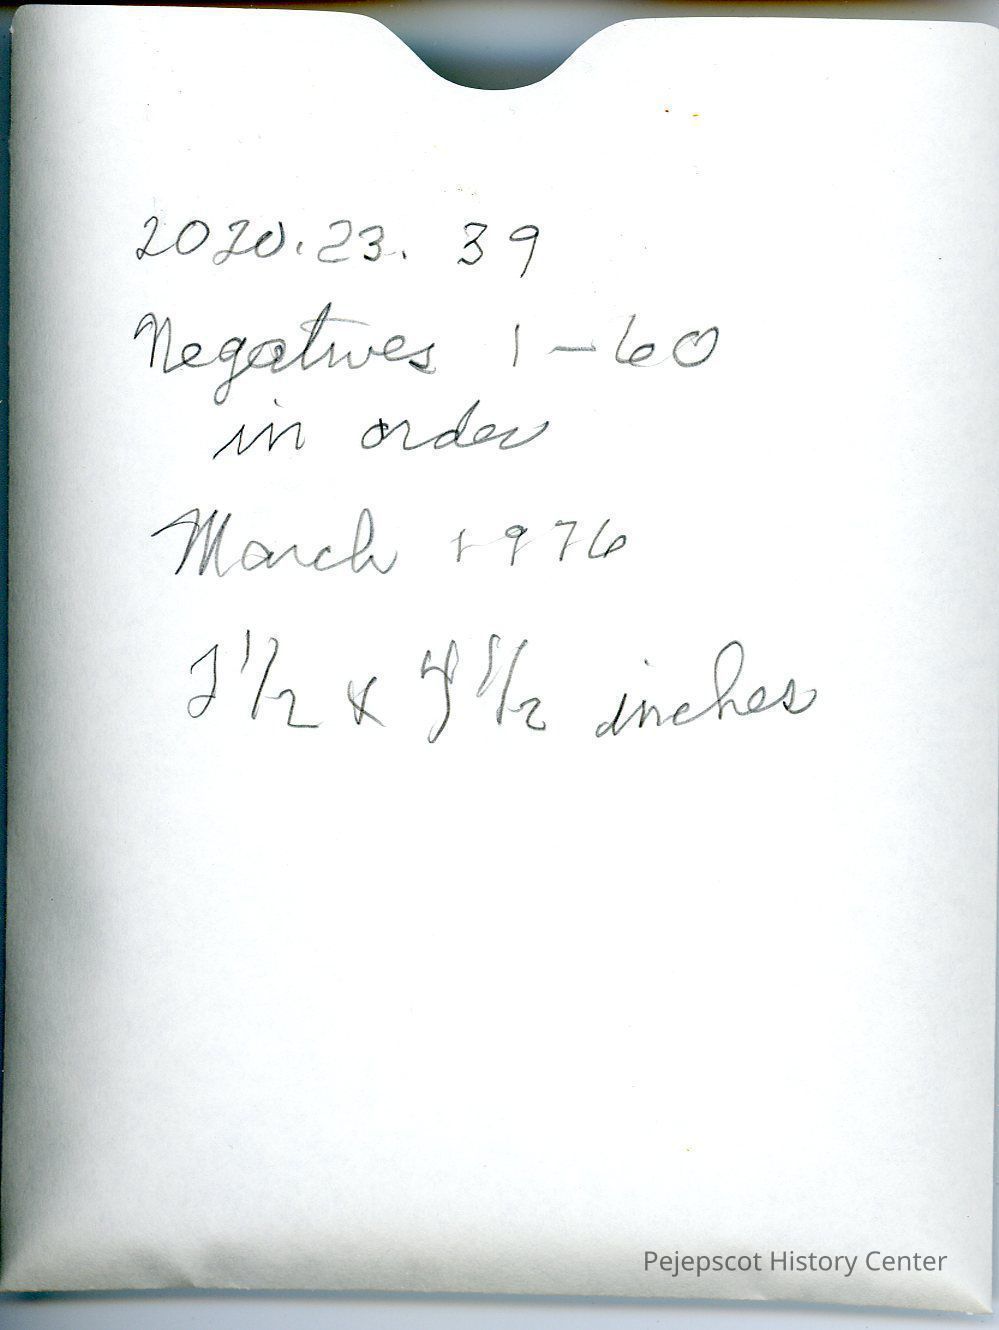 2020.23.39
Negatives 1-60
in order
March 1976
1/2 x 1/2 inches
Pejepscot History Center